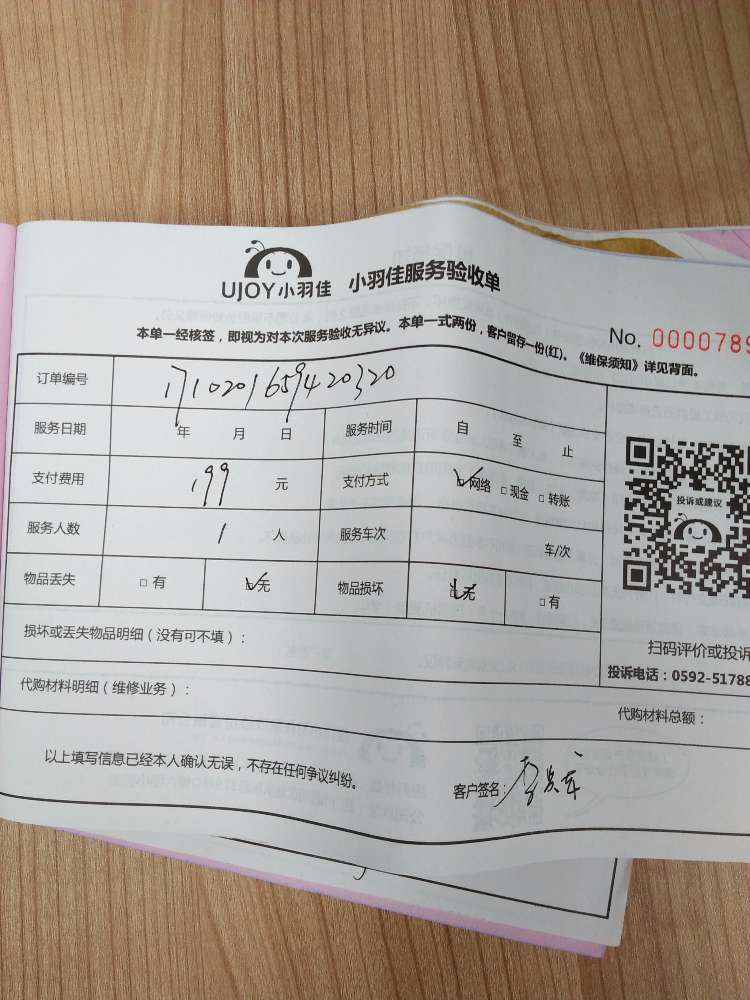 UJOY小羽佳 小羽佳服务验收单
本单一经核签，即视为对本次服务验收无异议。本单一式两份，客户留存一份(红)。《维保须知》详见背面。
No. 0000789
订单编号 1710201659420320
服务日期 年 月 日 服务时间 自 至 止
支付费用 199 元 支付方式 网络 现金 转账
投诉或建议
服务人数 1 人 服务车次 车/次
物品丢失 有 无 物品损坏 无 有
损坏或丢失物品明细（没有可不填）：
扫码评价或投诉
投诉电话：0592-51788
代购材料明细（维修业务）：
代购材料总额：
以上填写信息已经本人确认无误，不存在任何争议纠纷。
客户签名：